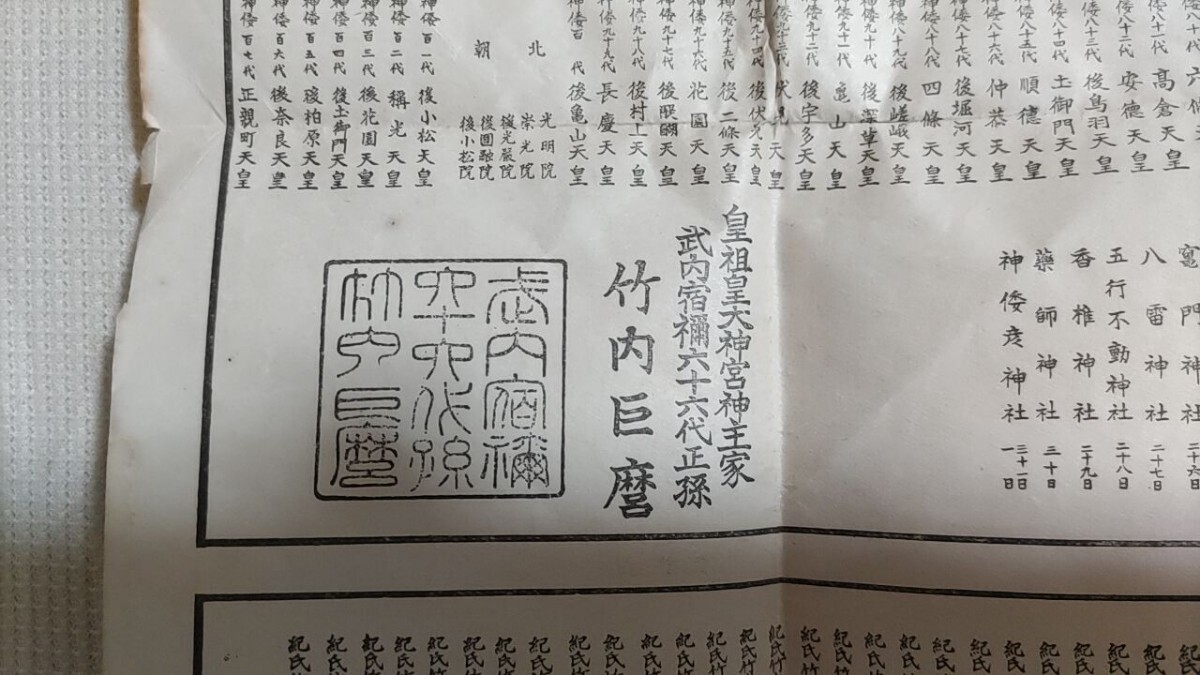 八十一代 高倉天皇
神倭八十二代 安德天皇
神倭八十三代 後鳥羽天皇
神倭八十四代 土御門天皇
神倭八十五代 順德天皇
神倭八十六代 仲恭天皇
神倭八十七代 後堀河天皇
神倭八十八代 四條天皇
神倭八十九代 後嵯峨天皇
神倭九十代 後深草天皇
神倭九十一代 龜山天皇
神倭九十二代 後宇多天皇
神倭九十三代 伏見天皇
神倭九十四代 後伏見天皇
神倭九十五代 後二條天皇
神倭九十六代 花園天皇
神倭九十七代 後醍醐天皇
神倭九十八代 後村上天皇
神倭九十九代 長慶天皇
神倭百代 後亀山天皇
北朝
光明院
崇光院
後光嚴院
後圓融院
後小松院
神倭百一代 後小松天皇
神倭百二代 稱光天皇
神倭百三代 後花園天皇
神倭百四代 後土御門天皇
神倭百五代 後柏原天皇
神倭百六代 後奈良天皇
神倭百七代 正親町天皇
竈門神社 二十六日
八雷神社 二十七日
五行不動神社 二十八日
香椎神社 二十九日
藥師神社 三十日
神倭彦神社 三十一日 一日
皇祖皇大神宮神主家
武內宿禰六十六代正孫
竹內巨麿
武内宿禰
六十六代孫
竹内巨麿
紀氏竹
紀氏竹
紀氏竹
紀氏竹
紀氏竹
紀氏竹
紀氏竹
紀氏竹
紀氏竹
紀氏竹
紀氏竹
紀氏竹
紀氏竹
紀氏竹